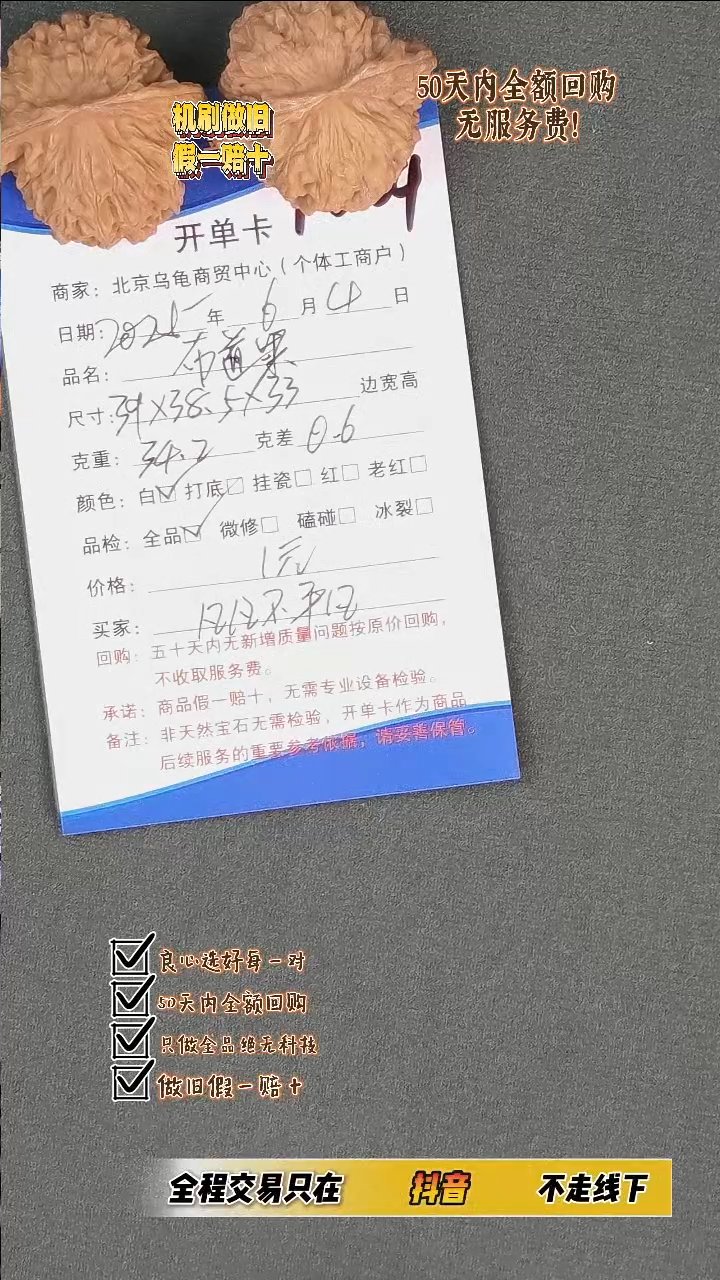 50天内全额回购
无服务费!
机刷做旧
假一赔十
开单卡
商家：北京乌龟商贸中心（个体工商户）
日期：2025年6月4日
品名：
尺寸：39X38.5X33 边宽高
克重：34.2 克差 0.6
颜色：白☑ 打底□ 挂瓷□ 红□ 老红□
品检：全品☑ 微修□ 磕碰□ 冰裂□
价格：1元
买家：
回购：五十天内无新增质量问题按原价回购，
不收取服务费。
承诺：商品假一赔十，无需专业设备检验。
备注：非天然宝石无需检验，开单卡作为商品
后续服务的重要参考依据，请妥善保管。
良心选好每一对
50天内全额回购
只做全品绝无科技
做旧假一赔十
全程交易只在 抖音 不走线下